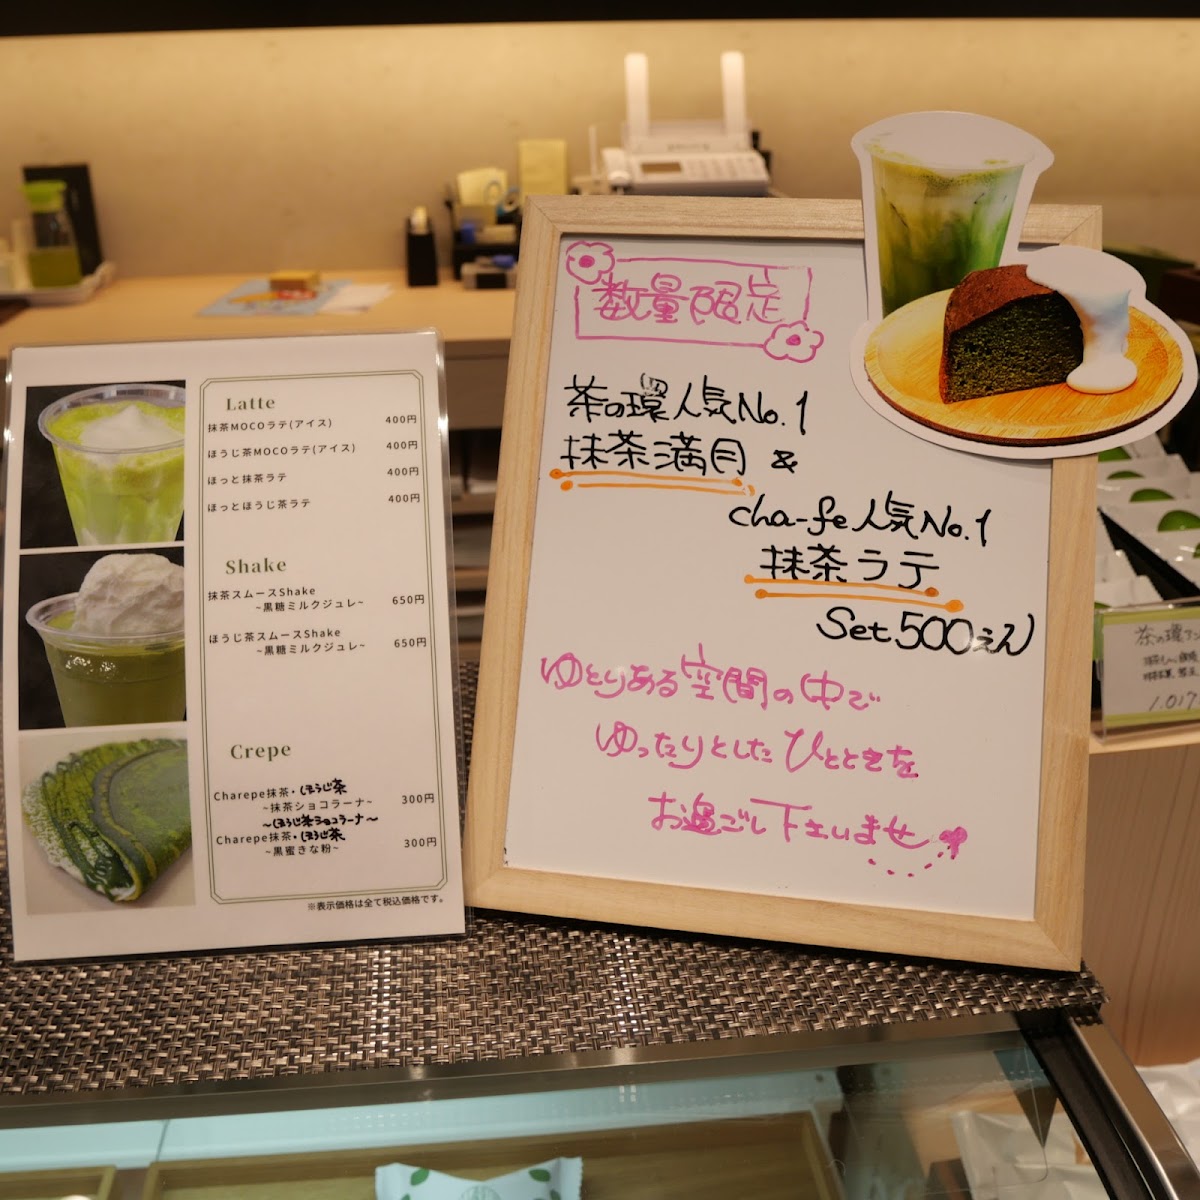 Latte
抹茶MOCOラテ(アイス) 400円
ほうじ茶MOCOラテ(アイス) 400円
ほっと抹茶ラテ 400円
ほっとほうじ茶ラテ 400円
Shake
抹茶スムースShake
~黒糖ミルクジュレ~ 650円
ほうじ茶スムースShake
~黒糖ミルクジュレ~ 650円
Crepe
Charepe抹茶・ほうじ茶
~抹茶ショコラーナ~ 300円
~ほうじ茶ショコラーナ~
Charepe抹茶・ほうじ茶
~黒蜜きな粉~ 300円
※表示価格は全て税込価格です。
数量限定
茶の環人気No.1
抹茶満月 &
cha-fe人気No.1
抹茶ラテ
Set.500えん
ゆとりある空間の中で
ゆったりとしたひとときを
お過ごし下さいませ
茶の環
1,017